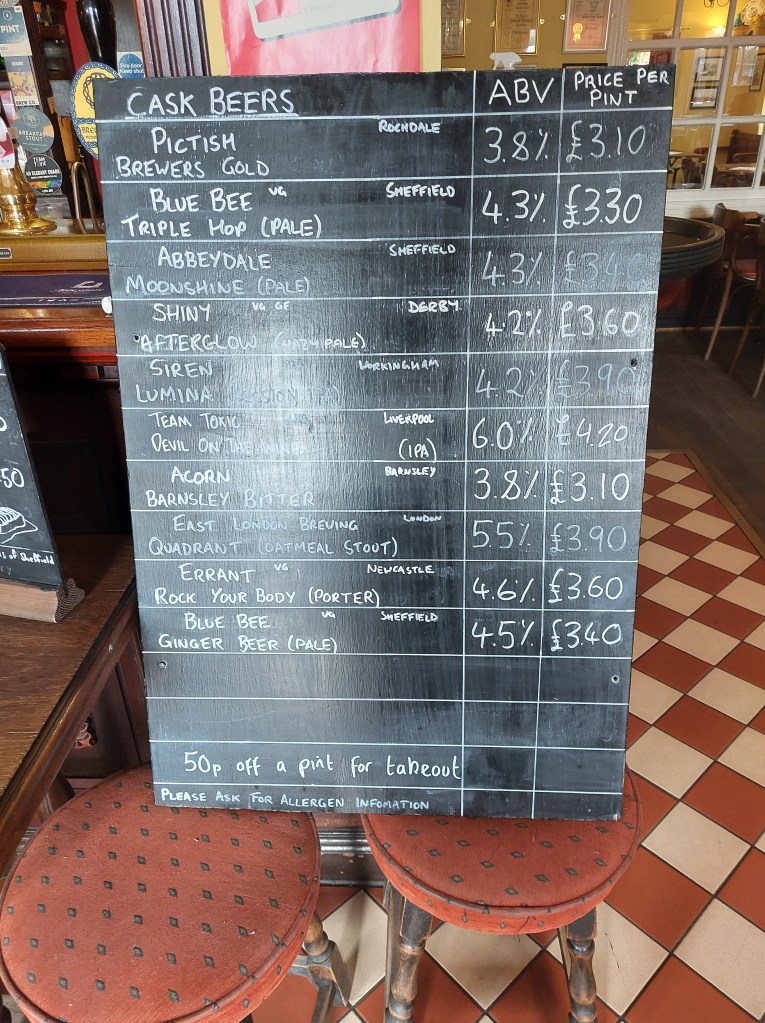 CASK BEERS ABV PRICE PER PINT
PICTISH ROCHDALE
BREWERS GOLD 3.8% £3.10
BLUE BEE VG SHEFFIELD
TRIPLE HOP (PALE) 4.3% £3.30
ABBEYDALE SHEFFIELD
MOONSHINE (PALE) 4.3% £3.40
SHINY VG GF DERBY
AFTERGLOW (HAZY PALE) 4.2% £3.60
SIREN WORKINGHAM
LUMINA (SESSION IPA) 4.2% £3.90
TEAM TOXIC LIVERPOOL
DEVIL ON THE (IPA) 6.0% £4.20
ACORN BARNSLEY
BARNSLEY BITTER 3.8% £3.10
EAST LONDON BREWING LONDON
QUADRANT (OATMEAL STOUT) 5.5% £3.90
ERRANT VG NEWCASTLE
ROCK YOUR BODY (PORTER) 4.6% £3.60
BLUE BEE VG SHEFFIELD
GINGER BEER (PALE) 4.5% £3.40
50p off a pint for takeout
PLEASE ASK FOR ALLERGEN INFOMATION
Fire door
Keep shut
PINT
BREAKFAST
STOUT
50
of Sheffield